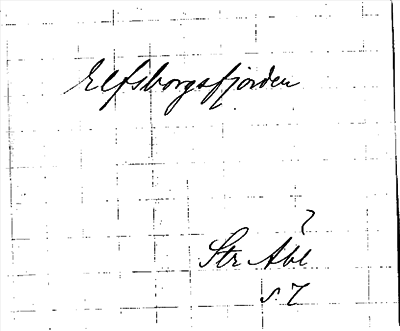 Elfsborgsfjorden
?
Str Abl
s. 7